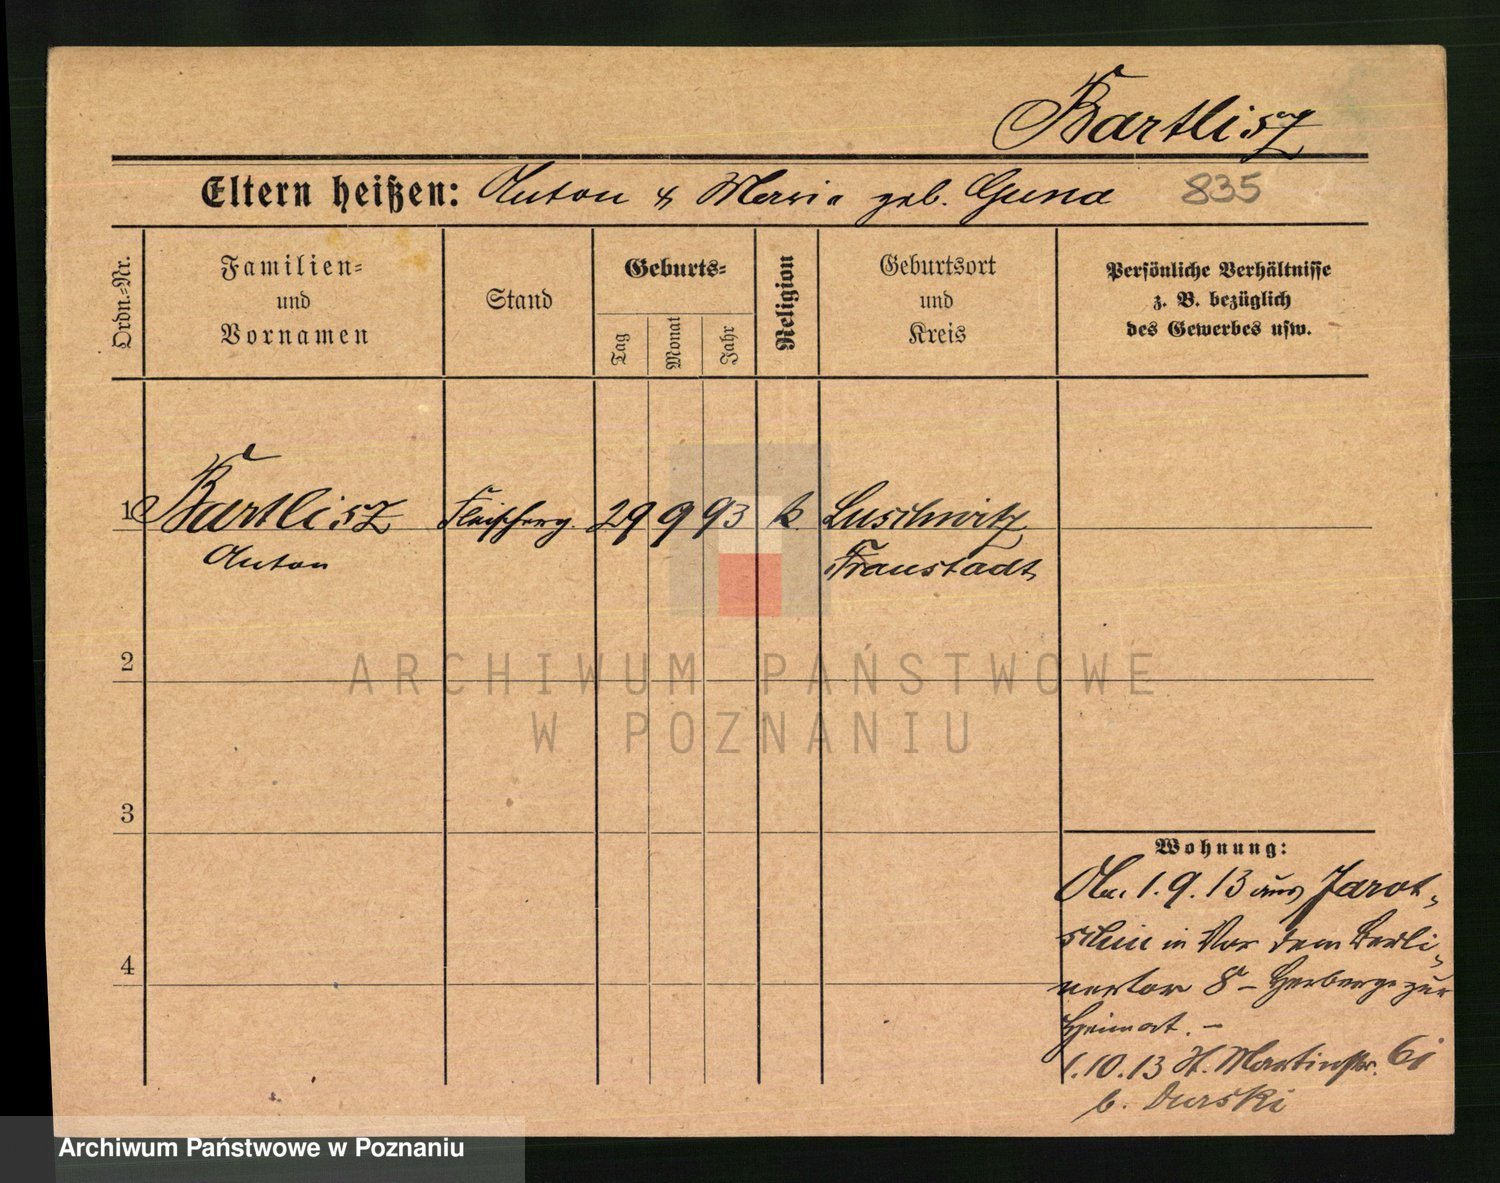 Bartlisz
Eltern heißen: Anton & Maria geb. Guna 835
Ordn.-Nr.
Familien-
und
Vornamen
Stand
Geburts-
Tag
Monat
Jahr
Religion
Geburtsort
und
Kreis
Persönliche Verhältnisse
z. B. bezüglich
des Gewerbes usw.
1 Bartlisz Fleischerg. 29 9 93 k. Luschwitz
Anton Fraustadt
2
3
4
Wohnung:
1.9.13 aus Jarot-
schin in Vor dem Berli-
nertor 8 - Herberge zur
Heimat. -
1.10.13 St. Martinstr. 61
b. Durski
ARCHIWUM PAŃSTWOWE
W POZNANIU
Archiwum Państwowe w Poznaniu